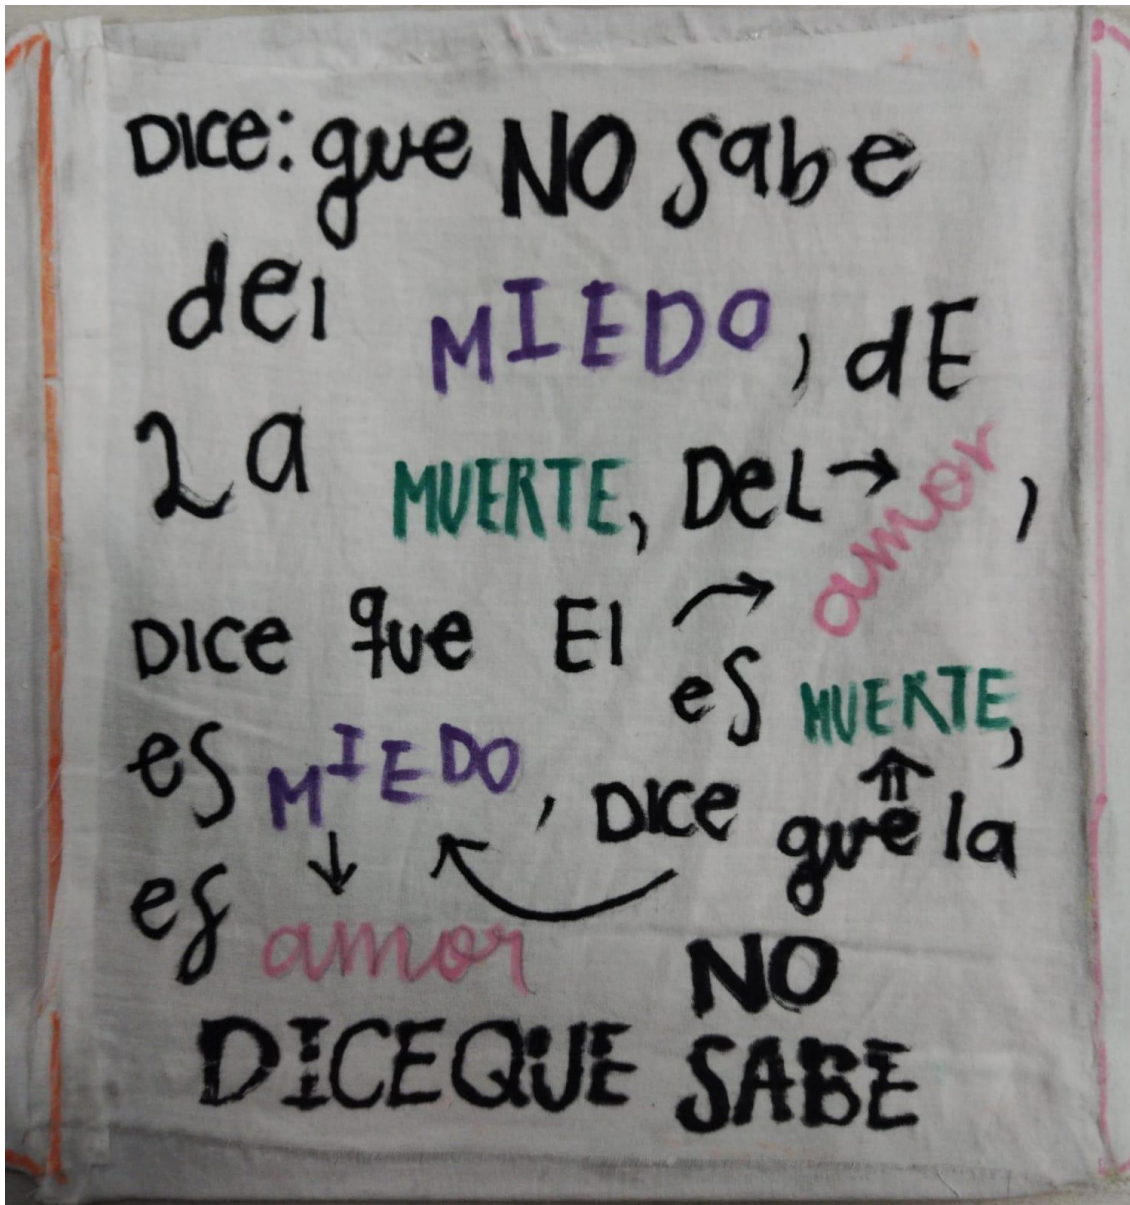 DICE: que NO sabe
del MIEDO, dE
La MUERTE, DeL → amor,
DICE que El →
es MUERTE,
es MIEDO, DICE que la
es amor
NO
DICE QUE SABE